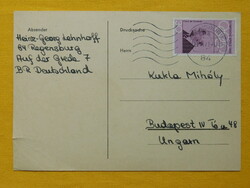 Absender
Heinz-Georg Lehnhoff
84 Regensburg
Auf der Grede 7
BR Deutschland
Drucksache
Herrn
Kukla Mihály
Budapest IV
Ungarn